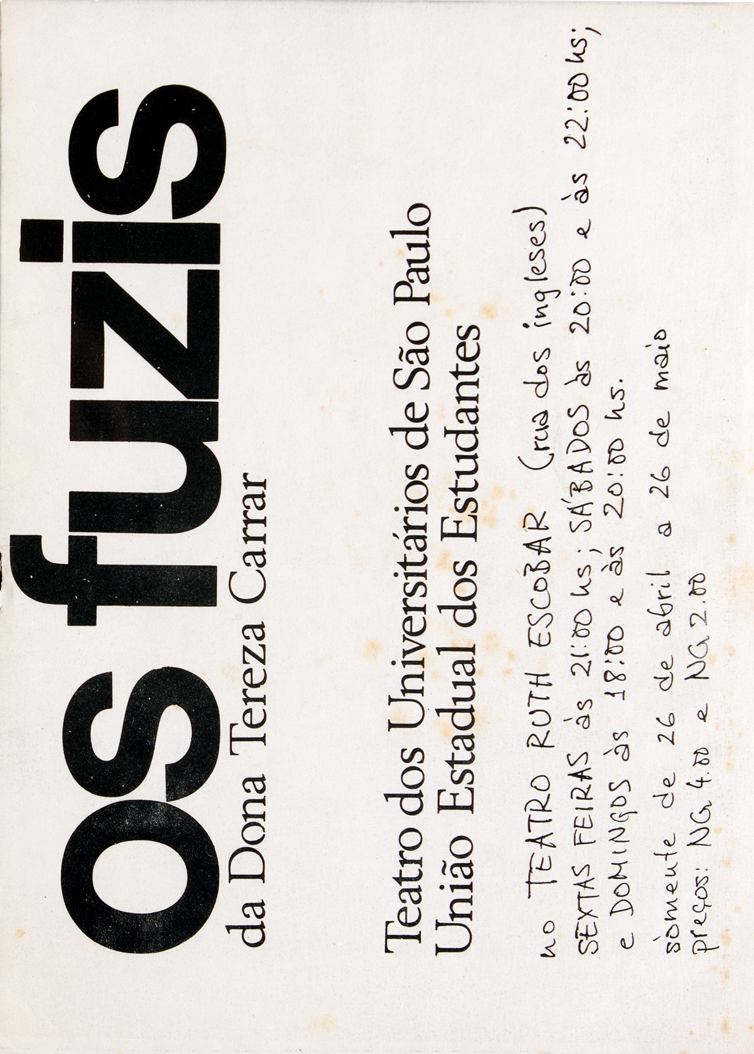 os fuzis
da Dona Tereza Carrar
Teatro dos Universitários de São Paulo
União Estadual dos Estudantes
no TEATRO RUTH ESCOBAR (rua dos ingleses)
SEXTAS FEIRAS às 21:00 hs; SÁBADOS às 20:00 e às 22:00 hs;
e DOMINGOS às 18:00 e às 20:00 hs.
sòmente de 26 de abril a 26 de maio
preços: NCr 4.00 e NCr 2.00